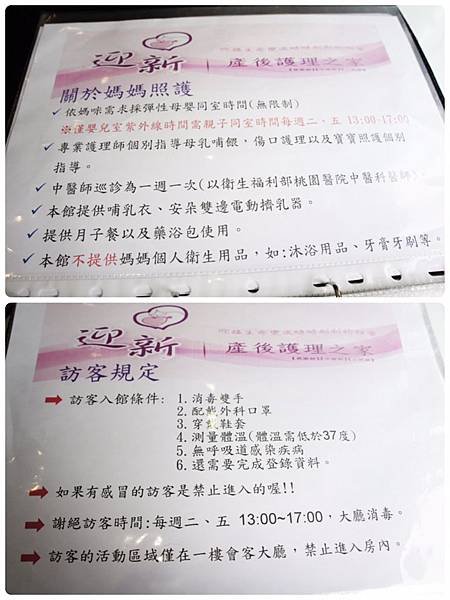 迎新 | 產後護理之家
關於媽媽照護
✓依媽咪需求採彈性母嬰同室時間(無限制)
※僅嬰兒室紫外線時需親子同室時間每週二、五 13:00-17:00
✓專業護理師個別指導母乳哺餵,傷口護理以及寶寶照護個別
指導。
✓中醫師巡診為一週一次(以衛生福利部桃園醫院中醫科醫師)。
✓本館提供哺乳衣、安朵雙邊電動擠乳器。
✓提供月子餐以及藥浴包使用。
✓本館不提供媽媽個人衛生用品,如:沐浴用品、牙膏牙刷等。
迎新 | 產後護理之家
訪客規定
➡ 訪客入館條件: 1. 消毒雙手
2. 配戴外科口罩
3. 穿戴鞋套
4. 測量體溫(體溫需低於37度)
5. 無呼吸道感染疾病
6. 還需要完成登錄資料。
➡ 如果有感冒的訪客是禁止進入的喔!!
➡ 謝絕訪客時間:每週二、五 13:00~17:00,大廳消毒。
➡ 訪客的活動區域僅在一樓會客大廳,禁止進入房內。